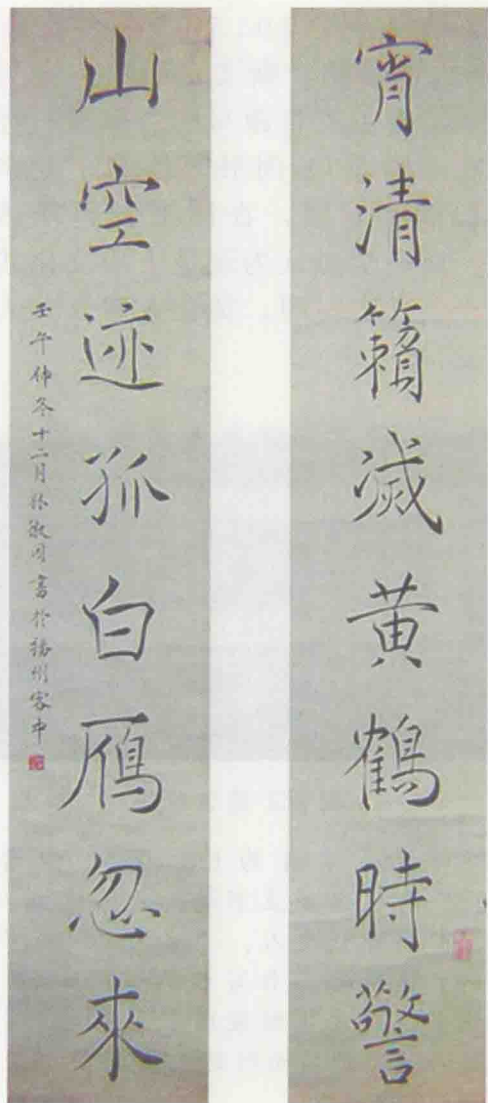 宵清籟滅黄鶴時警
山空迹孤白雁忽來
壬午仲冬十二月林敬国書於福州客中